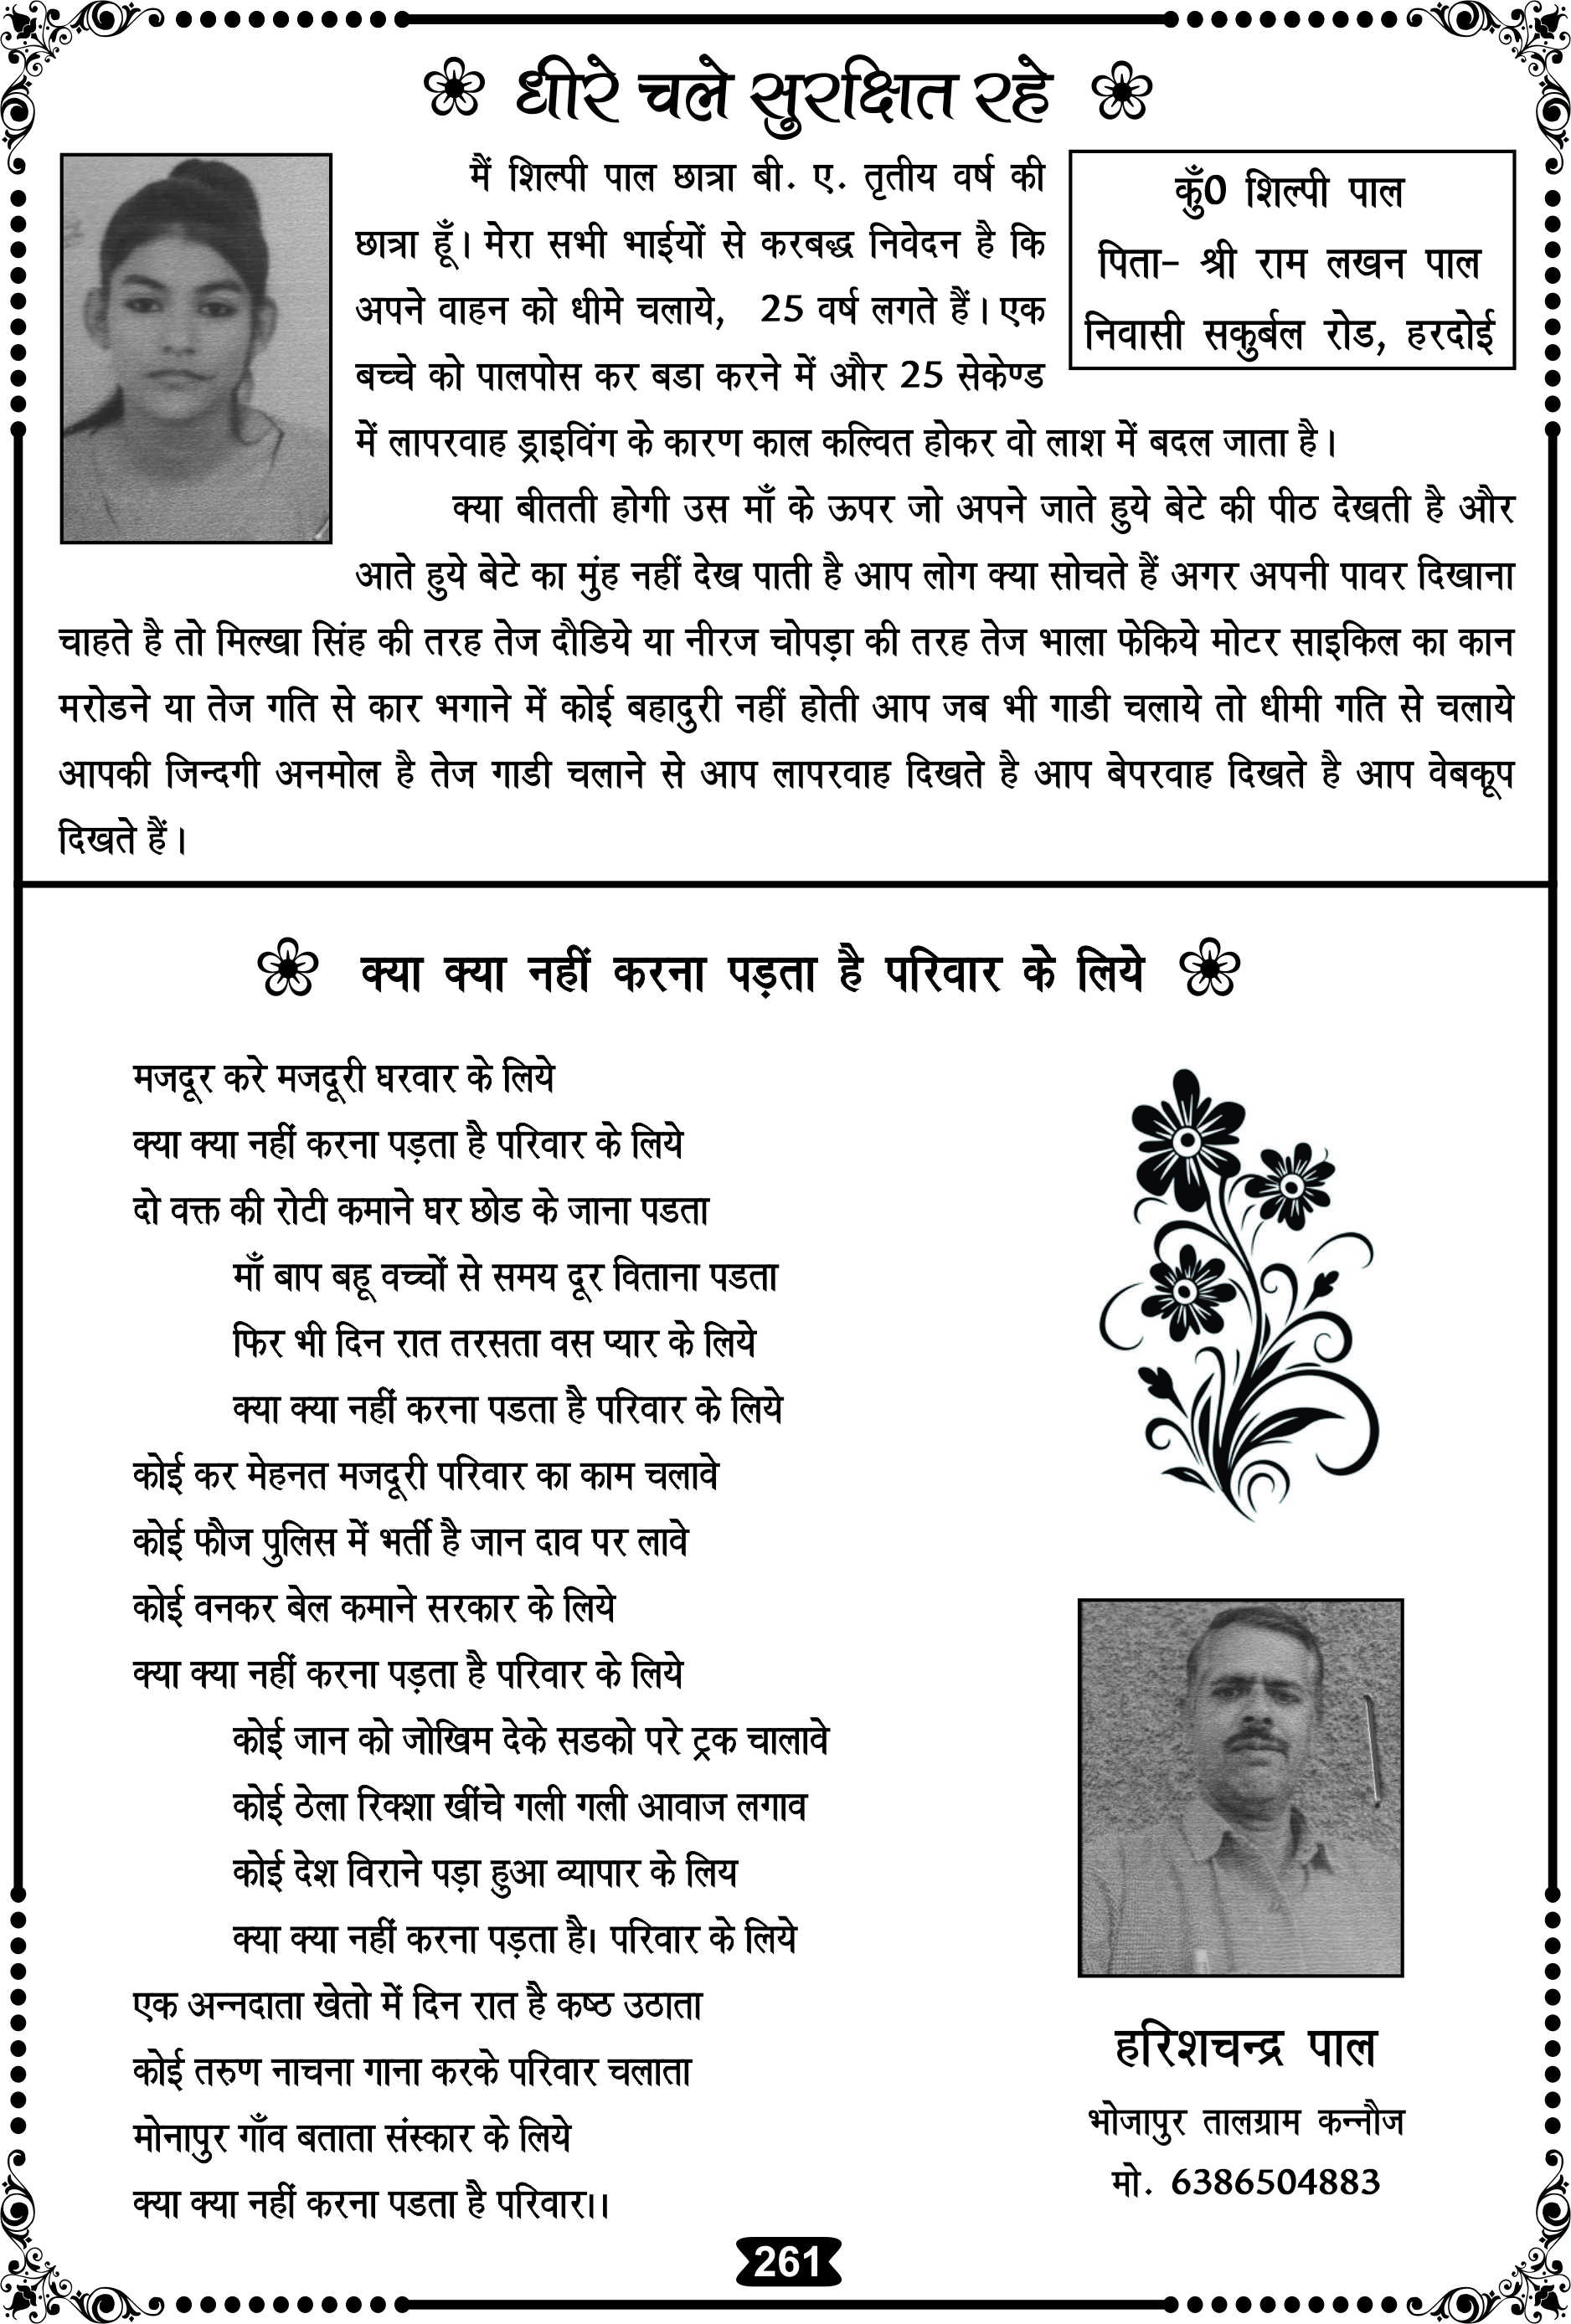 धीरे चले सुरक्षित रहे
कुँ0 शिल्पी पाल
पिता- श्री राम लखन पाल
निवासी सकुर्बल रोड, हरदोई
मैं शिल्पी पाल छात्रा बी. ए. तृतीय वर्ष की
छात्रा हूँ। मेरा सभी भाईयों से करबद्ध निवेदन है कि
अपने वाहन को धीमे चलाये, 25 वर्ष लगते हैं। एक
बच्चे को पालपोस कर बडा करने में और 25 सेकेण्ड
में लापरवाह ड्राइविंग के कारण काल कल्वित होकर वो लाश में बदल जाता है।
क्या बीतती होगी उस माँ के ऊपर जो अपने जाते हुये बेटे की पीठ देखती है और
आते हुये बेटे का मुंह नहीं देख पाती है आप लोग क्या सोचते हैं अगर अपनी पावर दिखाना
चाहते है तो मिल्खा सिंह की तरह तेज दौडिये या नीरज चोपड़ा की तरह तेज भाला फेकिये मोटर साइकिल का कान
मरोडने या तेज गति से कार भगाने में कोई बहादुरी नहीं होती आप जब भी गाडी चलाये तो धीमी गति से चलाये
आपकी जिन्दगी अनमोल है तेज गाडी चलाने से आप लापरवाह दिखते है आप बेपरवाह दिखते है आप वेबकूप
दिखते हैं।
क्या क्या नहीं करना पड़ता है परिवार के लिये
मजदूर करे मजदूरी घरवार के लिये
क्या क्या नहीं करना पड़ता है परिवार के लिये
दो वक्त की रोटी कमाने घर छोड के जाना पडता
माँ बाप बहू वच्चों से समय दूर विताना पडता
फिर भी दिन रात तरसता वस प्यार के लिये
क्या क्या नहीं करना पडता है परिवार के लिये
कोई कर मेहनत मजदूरी परिवार का काम चलावे
कोई फौज पुलिस में भर्ती है जान दाव पर लावे
कोई वनकर बेल कमाने सरकार के लिये
क्या क्या नहीं करना पड़ता है परिवार के लिये
कोई जान को जोखिम देके सडको परे ट्रक चालावे
कोई ठेला रिक्शा खींचे गली गली आवाज लगाव
कोई देश विराने पड़ा हुआ व्यापार के लिय
क्या क्या नहीं करना पड़ता है। परिवार के लिये
एक अन्नदाता खेतो में दिन रात है कष्ठ उठाता
कोई तरुण नाचना गाना करके परिवार चलाता
मोनापुर गाँव बताता संस्कार के लिये
क्या क्या नहीं करना पडता है परिवार।।
हरिशचन्द्र पाल
भोजापुर तालग्राम कन्नौज
मो. 6386504883
261